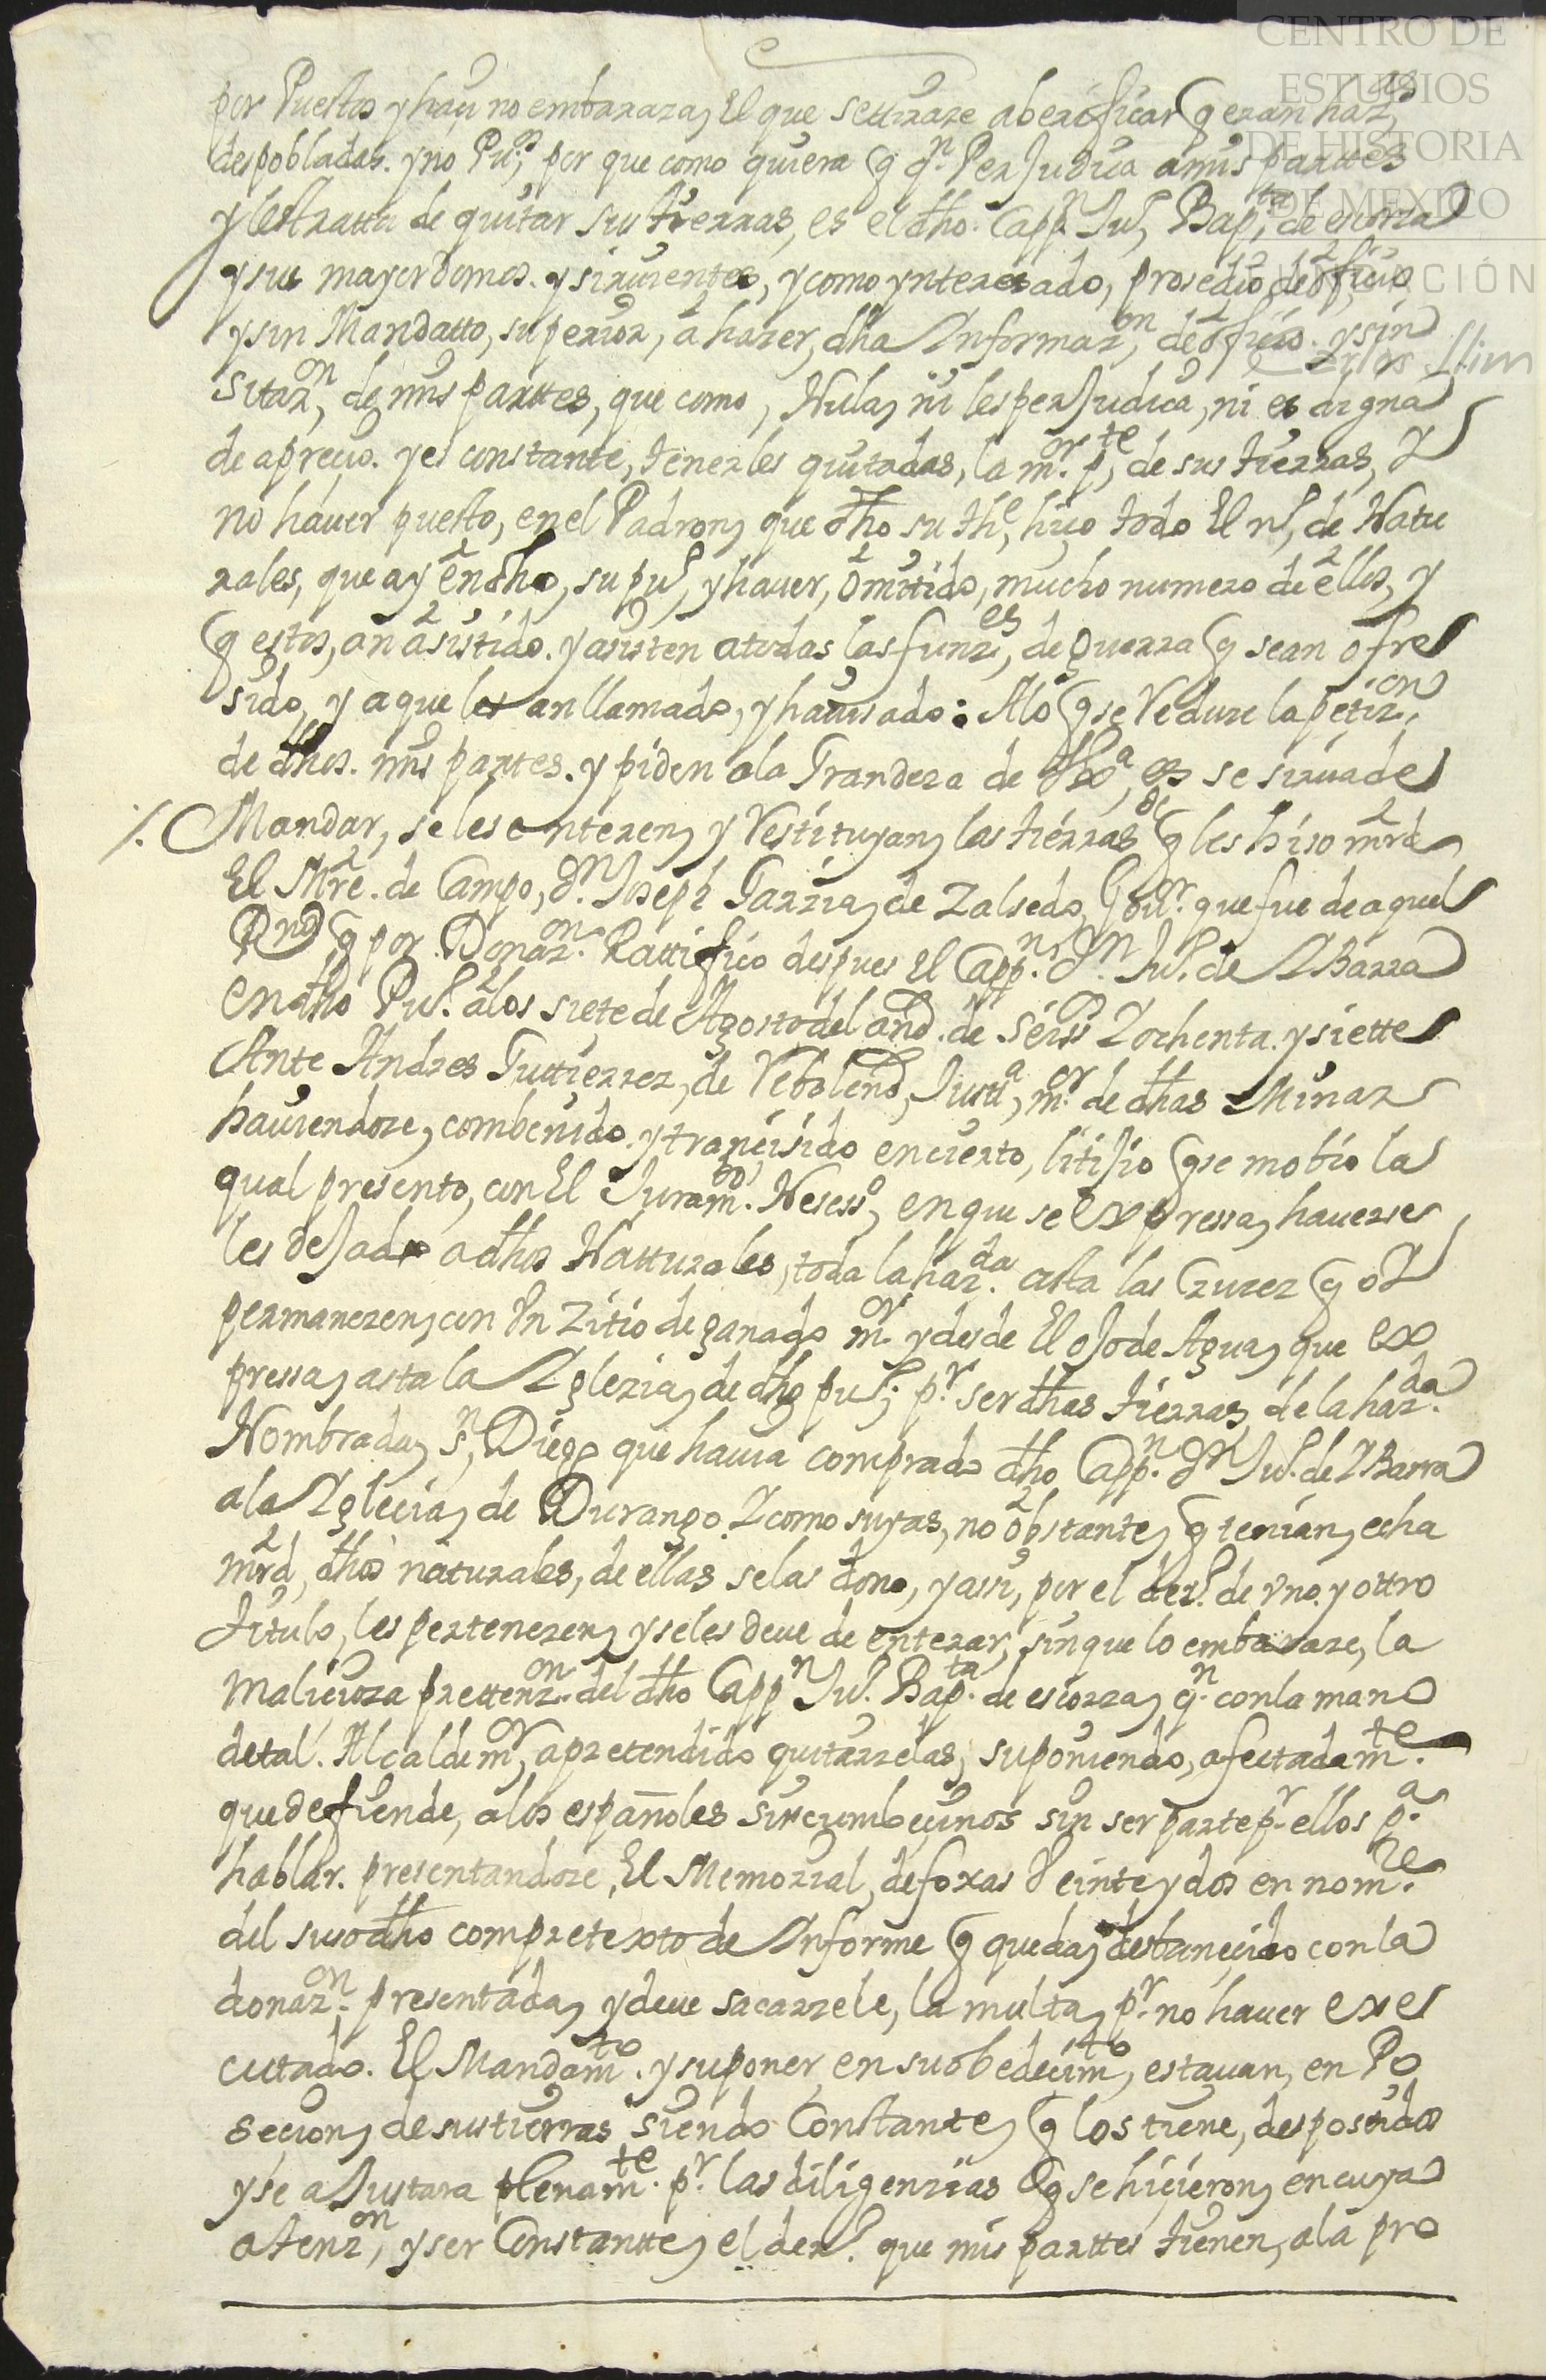 CENTRO DE
ESTUDIOS
DE HISTORIA
DE MEXICO
FUNDACIÓN
Carlos Slim
por Puestos y hay no embaraza, El que settrare aberificar q eran haz.as
despobladas. y no Pu.os por que como quiera q q.n PerJudica amis parttes
y lestratta de quitar sus tierras, es el dho. Capp.n Ju.o Bap.ta de escorza
y sus mayordomos. y sirvientes, y como ynteresado, prosedio de oficio
y sin Mandatto, superior, a hazer, dha Informaz.on de oficio. y sin
sitaz.on, de mis parttes, que como, Nula, ni lesperJudica, ni es digna
de aprecio. y es constante, tenerles quitadas, la m.or p.te, de sus tierras, Y
no haver puesto, en el Padron, que dho su the, hizo todo El n.o, de Natu
rales, que ay en dho, su pu.o, y haver, omitido, mucho numero de ellos, y
q estos, an asistido. y asisten atodas las funz.es, de guerra q sean ofre
sido, y aque les an llamado, y havisado: Alo q se Reduze la petiz.on
de dhos. mis partes. y piden ala Grandeza de VEx.a, se sirva de
/. Mandar, se les enteren, y Restituyan, las tierras q les hiso mrd
El Mre. de Campo, D.n Joseph Garzia, de Zalsedo, Gov.or que fue de aquel
Rno q por Donaz.on Rattifico despues El Capp.n D.n Ju.o de YBarra
en dho Pu.o a los siete de Agosto del año. de seiss Y ochenta. y siette
Ante Andres Guttierrez, de Reboleño, Justi.a, m.or de dhas Minas
haviendoze, combenido. y trancisido encierto, litiJio q se mobio la
qual presento, con El Juram.to Nesess.o, en que se expressa, haverse
les deJado adhos Natturales, toda la haz.da asta las Cruzes q oY
permanezen, con Un Zitio de ganado m.or y desde El oJo de Agua, que ex
pressa, asta la Yglezia, de dho pu.o; p.r ser dhas tierras, de la haz.da
Nombrada, S.n Diego que havia comprado dho Capp.n D.n Ju.o de YBarra
ala Yglecia, de Durango. Y como suyas, no obstante, q tenian, echa
mrd, dhos naturales, de ellas selas dono, y assi, por el der.o de uno. y ottro
titulo, les pertenezen, y seles deve de enterar, sin que lo embaraze, la
maliciosa prettenz.on del dho Capp.n Ju.o Bap.ta de escorza, q.n con la mano
detal. Alcalde m.or, a pretendido quitarzelas, suponiendo, afectadam.te
que defiende, alos españoles sircumbecinos sin ser parte p.r ellos p.a
hablar. presentandoze, El Memorial, de foxas Veinte y dos en nom.re
del susodho compretexto de Informe q queda, desbanecido con la
donaz.on presentada, y deve sacarzele, la multa, p.r no haver exe
cutado. El Mandam.to. y suponer, en su obedecim.to, estavan, en Po
secion, de sus tierras siendo Constante, q los tiene, desposeidos
y se aJustara plenam.te p.r las diligenzias q se hicieron, en cuya
atenz.on, y ser Constantte, el der.o que mis parttes tienen, ala pro